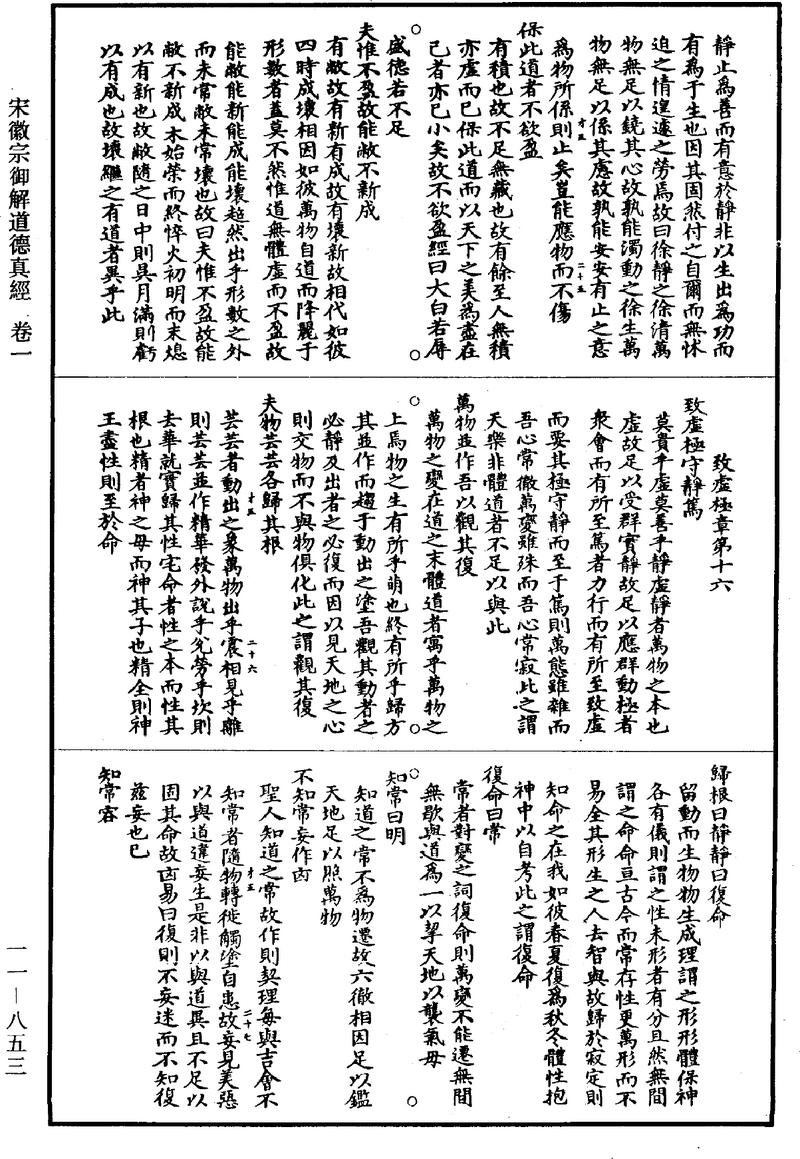 靜止為善而有意於靜非以生出為功而
有為于生也因其固然付之自爾而無怵
迫之情遑遽之勞焉故曰徐靜之徐清萬
物無足以鐃其心故孰能濁動之徐生萬
物無足以係其慮故孰能安安有止之意
為物所係則止矣豈能應物而不傷
保此道者不欲盈
有積也故不足無藏也故有餘至人無積
亦虛而已保此道而以天下之美為盡在
己者亦已小矣故不欲盈經曰大白若辱
盛德若不足
夫惟不盈故能敝不新成
有敝故有新有成故有壞新故相代如彼
四時成壞相因如彼萬物自道而降麗于
形數者蓋莫不然惟道無體虛而不盈故
能敝能新能成能壞超然出乎形數之外
而未常敝未常壞也故曰夫惟不盈故能
敝不新成木始榮而終悴火初明而末熄
以有新也故敝隨之日中則昃月滿則虧
以有成也故壞繼之有道者異乎此
致虛極章第十六
致虛極守靜篤
莫貴乎虛莫善乎靜虛靜者萬物之本也
虛故足以受群實靜故足以應群動極者
衆會而有所至篤者力行而有所至致虛
而要其極守靜而至于篤則萬態雖雜而
吾心常徹萬變雖殊而吾心常寂此之謂
天樂非體道者不足以與此
萬物並作吾以觀其復
萬物之變在道之末體道者寓乎萬物之
上焉物之生有所乎萌也終有所乎歸方
其並作而趨于動出之塗吾觀其動者之
必靜及出者之必復而因以見天地之心
則交物而不與物俱化此之謂觀其復
夫物芸芸各歸其根
芸芸者動出之衆萬物出乎震相見乎離
則芸芸並作精華發外說乎兌勞乎坎則
去華就實歸其性宅命者性之本而性其
根也精者神之母而神其子也精全則神
王盡性則至於命
歸根曰靜靜曰復命
留動而生物物生成理謂之形形體保神
各有儀則謂之性未形者有分且然無間
謂之命命亘古今而常存性更萬形而不
易全其形生之人去智與故歸於寂定則
知命之在我如彼春夏復為秋冬體性抱
神中以自考此之謂復命
復命曰常
常者對變之詞復命則萬變不能遷無間
無歇與道為一以挈天地以襲氣母
知常曰明
知道之常不為物遷故六徹相因足以鑑
天地足以照萬物
不知常妄作凶
聖人知道之常故作則契理每與吉會不
知常者隨物轉徙觸塗自患故妄見美惡
以與道違妄生是非以與道異且不足以
固其命故凶易曰復則不妄迷而不知復
茲妄也已
知常容
才五
二十五
才五
二十六
才五
二十七
宋徽宗御解道德真經 卷一
一一—八五三